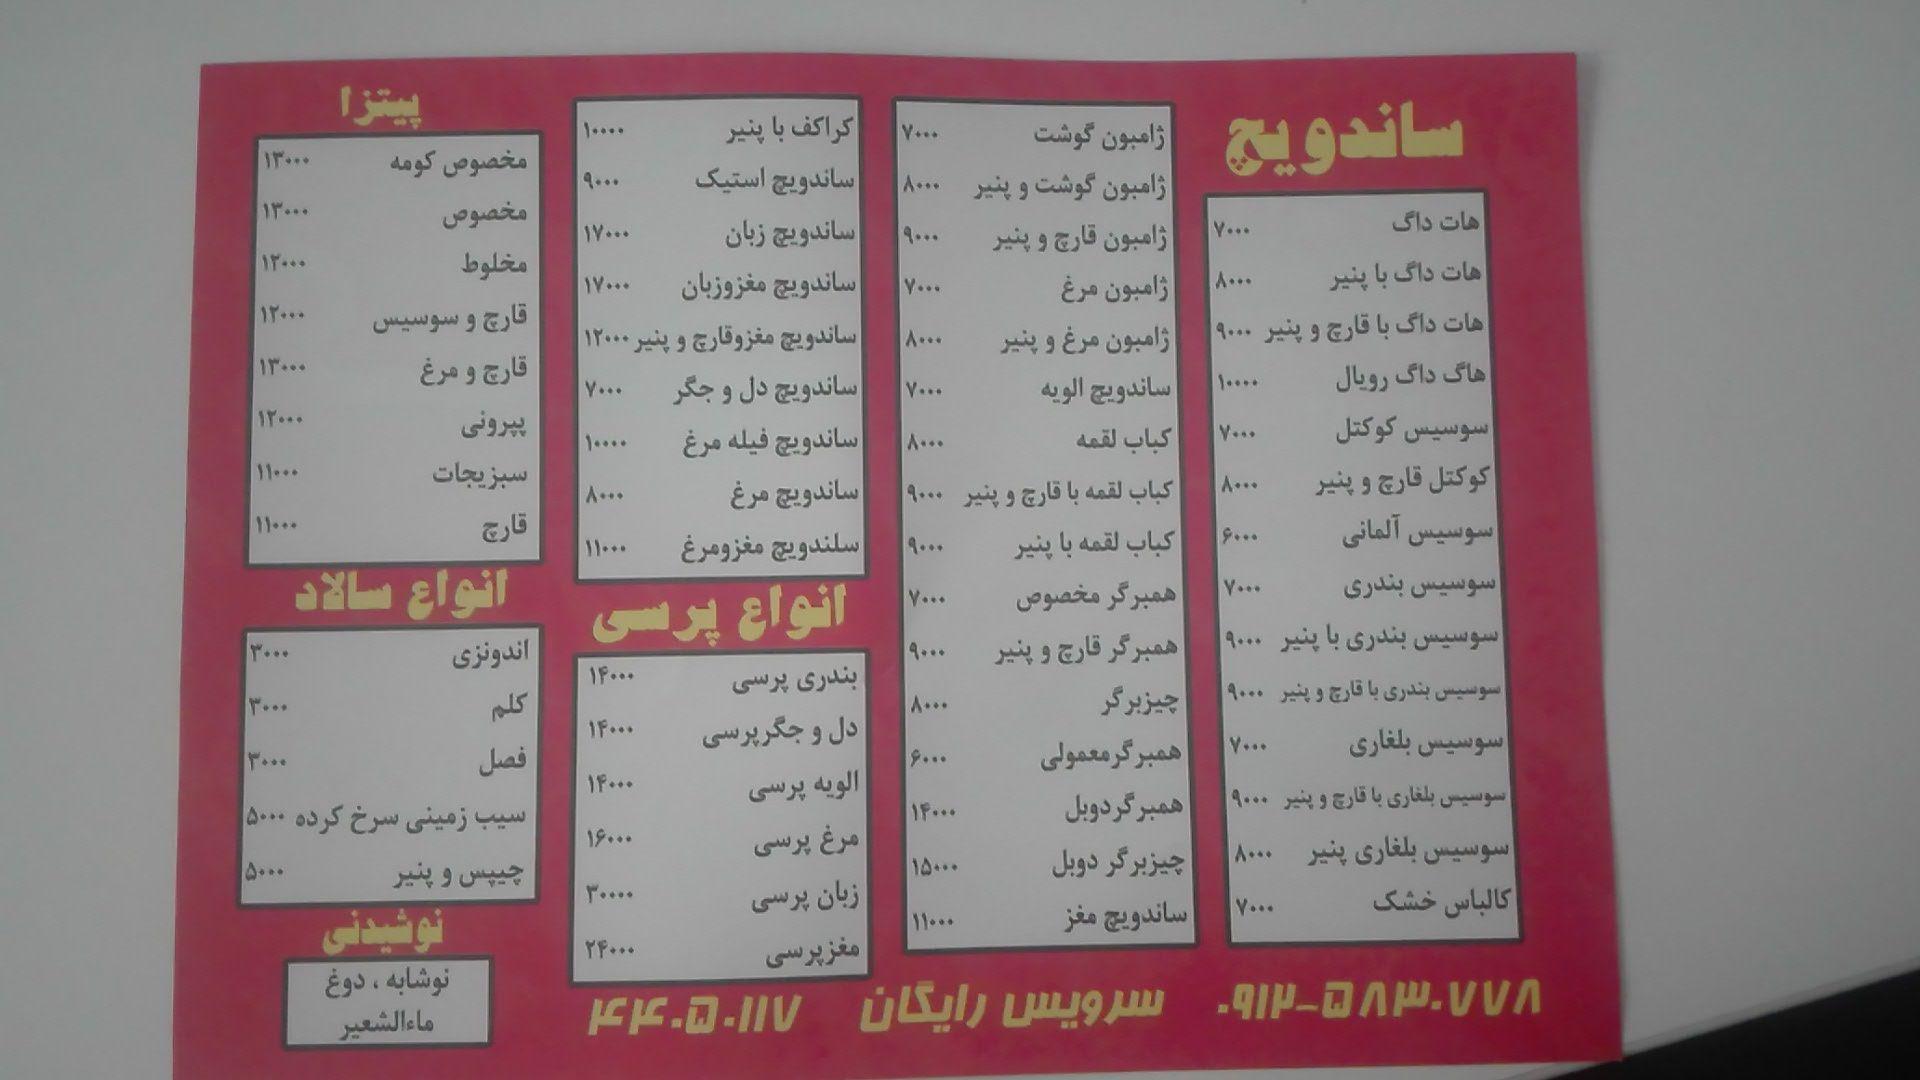 ساندویچ
هات داگ ۷۰۰۰
هات داگ با پنیر ۸۰۰۰
هات داگ با قارچ و پنیر ۹۰۰۰
هاگ داگ رویال ۱۰۰۰۰
سوسیس کوکتل ۷۰۰۰
کوکتل قارچ و پنیر ۸۰۰۰
سوسیس آلمانی ۶۰۰۰
سوسیس بندری ۷۰۰۰
سوسیس بندری با پنیر ۹۰۰۰
سوسیس بندری با قارچ و پنیر ۹۰۰۰
سوسیس بلغاری ۷۰۰۰
سوسیس بلغاری با قارچ و پنیر ۹۰۰۰
سوسیس بلغاری پنیر ۸۰۰۰
کالباس خشک ۷۰۰۰
ژامبون گوشت ۷۰۰۰
ژامبون گوشت و پنیر ۸۰۰۰
ژامبون قارچ و پنیر ۹۰۰۰
ژامبون مرغ ۷۰۰۰
ژامبون مرغ و پنیر ۸۰۰۰
ساندویچ الویه ۷۰۰۰
کباب لقمه ۸۰۰۰
کباب لقمه با قارچ و پنیر ۹۰۰۰
کباب لقمه با پنیر ۹۰۰۰
همبرگر مخصوص ۷۰۰۰
همبرگر قارچ و پنیر ۹۰۰۰
چیزبرگر ۸۰۰۰
همبرگرمعمولی ۶۰۰۰
همبرگردوبل ۱۴۰۰۰
چیزبرگر دوبل ۱۵۰۰۰
ساندویچ مغز ۱۱۰۰۰
کراکف با پنیر ۱۰۰۰۰
ساندویچ استیک ۹۰۰۰
ساندویچ زبان ۱۷۰۰۰
ساندویچ مغزوزبان ۱۷۰۰۰
ساندویچ مغزوقارچ و پنیر ۱۲۰۰۰
ساندویچ دل و جگر ۷۰۰۰
ساندویچ فیله مرغ ۱۰۰۰۰
ساندویچ مرغ ۸۰۰۰
سلندویچ مغزومرغ ۱۱۰۰۰
انواع پرسی
بندری پرسی ۱۴۰۰۰
دل و جگرپرسی ۱۴۰۰۰
الویه پرسی ۱۴۰۰۰
مرغ پرسی ۱۶۰۰۰
زبان پرسی ۳۰۰۰۰
مغزپرسی ۲۴۰۰۰
پیتزا
مخصوص کومه ۱۳۰۰۰
مخصوص ۱۳۰۰۰
مخلوط ۱۲۰۰۰
قارچ و سوسیس ۱۲۰۰۰
قارچ و مرغ ۱۳۰۰۰
پپرونی ۱۲۰۰۰
سبزیجات ۱۱۰۰۰
قارچ ۱۱۰۰۰
انواع سالاد
اندونزی ۳۰۰۰
کلم ۳۰۰۰
فصل ۳۰۰۰
سیب زمینی سرخ کرده ۵۰۰۰
چیپس و پنیر ۵۰۰۰
نوشیدنی
نوشابه ، دوغ
ماءالشعیر
۰۹۱۲-۵۸۳۰۷۷۸ سرویس رایگان ۴۴۰۵۰۱۱۷